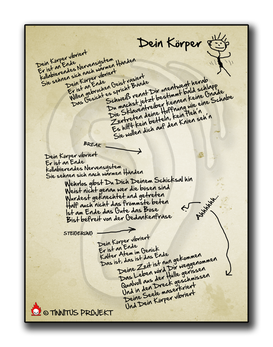 Dein Körper
Dein Körper vibriert
Er ist an Ende
kollabierendes Nervensystem
Sie sehnen sich nach warmen Händen
Dein Körper vibriert
Er ist an Ende
Willen gebrochen Geist ruiniert
Das Gesicht es spricht Bände
Schweiß rennt Dir
herab
Du machst jetzt bestimmt bald schlapp
Die Sklaventreiber kennen keine Gnade
Zertreten deine Hoffnung wie eine Schabe
Es hilft kein betteln, kein Fleh'n
Sie wollen dich auf den Knien seh'n
BREAK
Dein Körper vibriert
Er ist an Ende
kollabierendes Nervensystem
Sie sehnen sich nach warmen Händen
Wehrlos gibst Du Dich Deinem Schicksal hin
Weist nicht genau wer die bösen sind
Wurdest geknechtet und getreten
Half auch nicht das Frommste beten
Ist am Ende das Gute das Böse
Bist befreit von der Gedankenfrase
Ahhhhhh
STEIGERUNG
Dein Körper vibriert
Er ist an Ende
Kalter Atem im Genick
Das ist, das ist das Ende
Deine Zeit ist nun gekommen
Das Leben wird Dir weggenommen
Qualvoll aus der Hülle gerissen
Und in den Dreck geschmissen
Deine Seele masakriert
Und Dein Körper vibriert
© TINNITUS PROJEKT